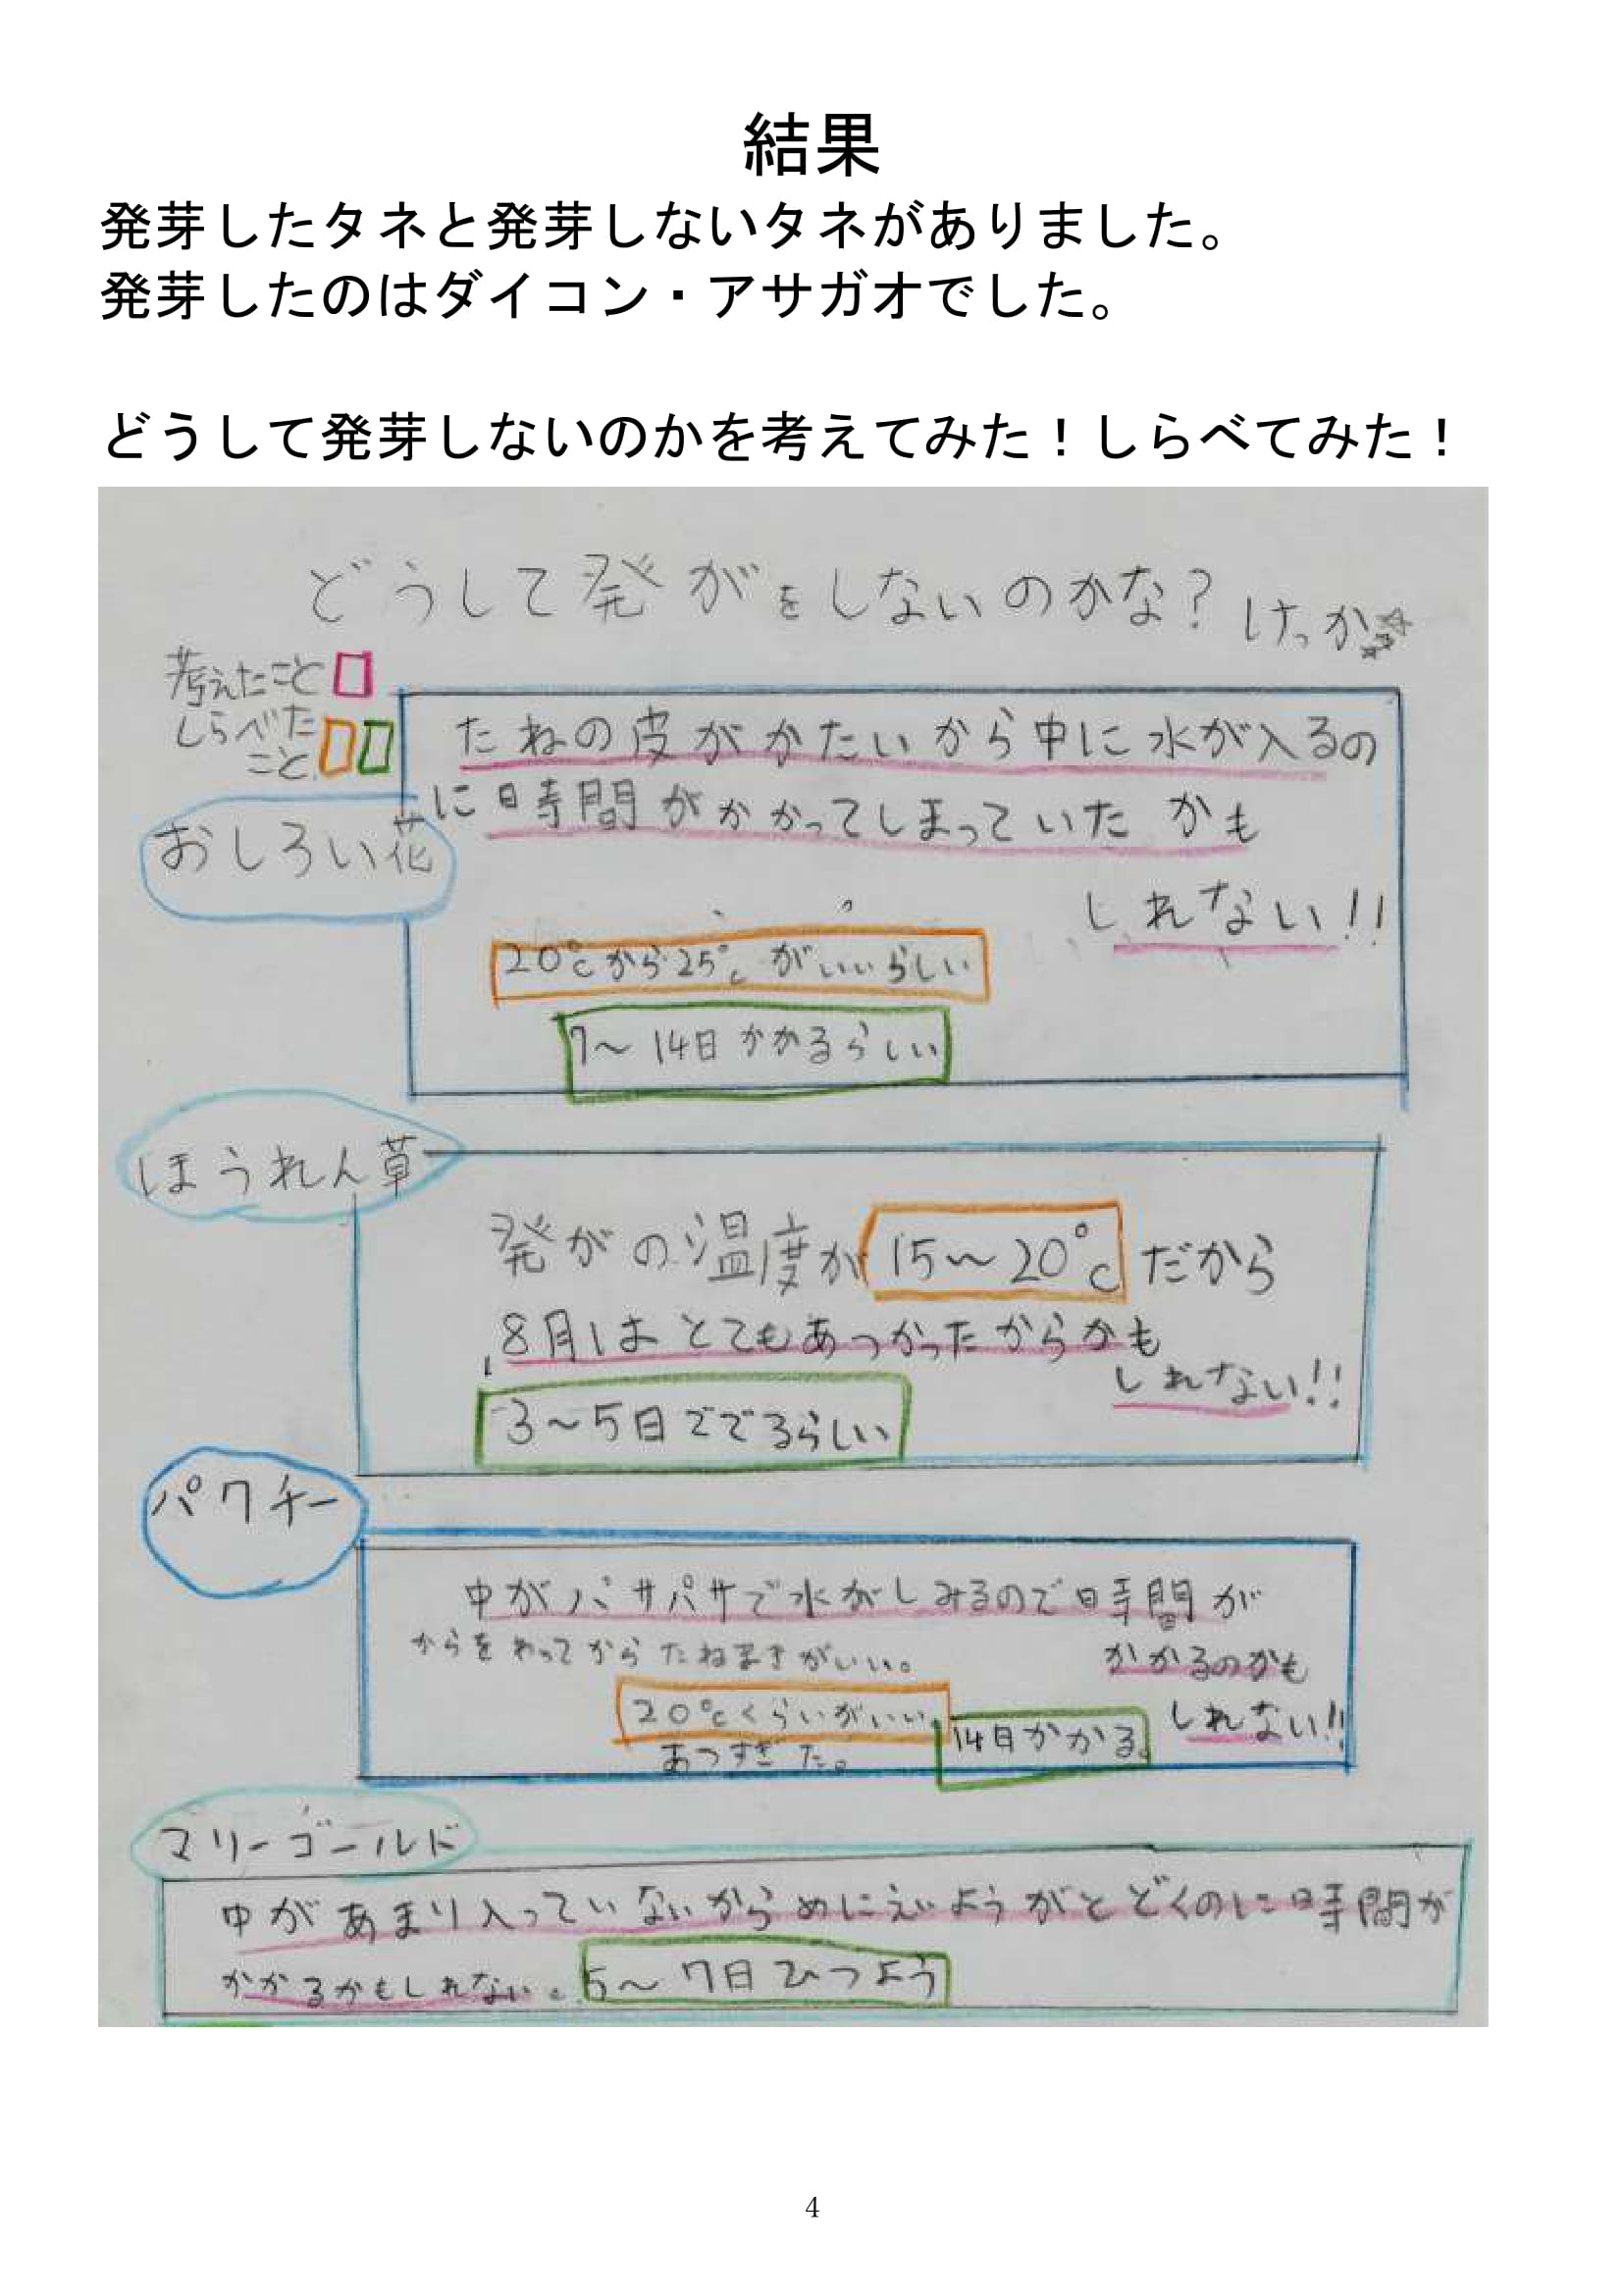 結果
発芽したタネと発芽しないタネがありました。
発芽したのはダイコン・アサガオでした。
どうして発芽しないのかを考えてみた！しらべてみた！
どうして発がをしないのかな？けっか
考えたこと
しらべた
こと
たねの皮がかたいから中に水が入るの
に時間がかかってしまっていたかも
しれない!!
おしろい花
20℃から25℃がいいらしい
7～14日かかるらしい
ほうれん草
発がの温度が15～20℃だから
8月はとてもあつかったからかも
しれない!!
3～5日ででるらしい
パクチー
中がパサパサで水がしみるので時間が
かかるのかも
しれない!!
からをわってからたねまきがいい。
20℃くらいがいい
あつすぎた。
14日かかる。
マリーゴールド
中があまり入っていないからめにえいようがとどくのに時間が
かかるかもしれない。5～7日ひつよう
4